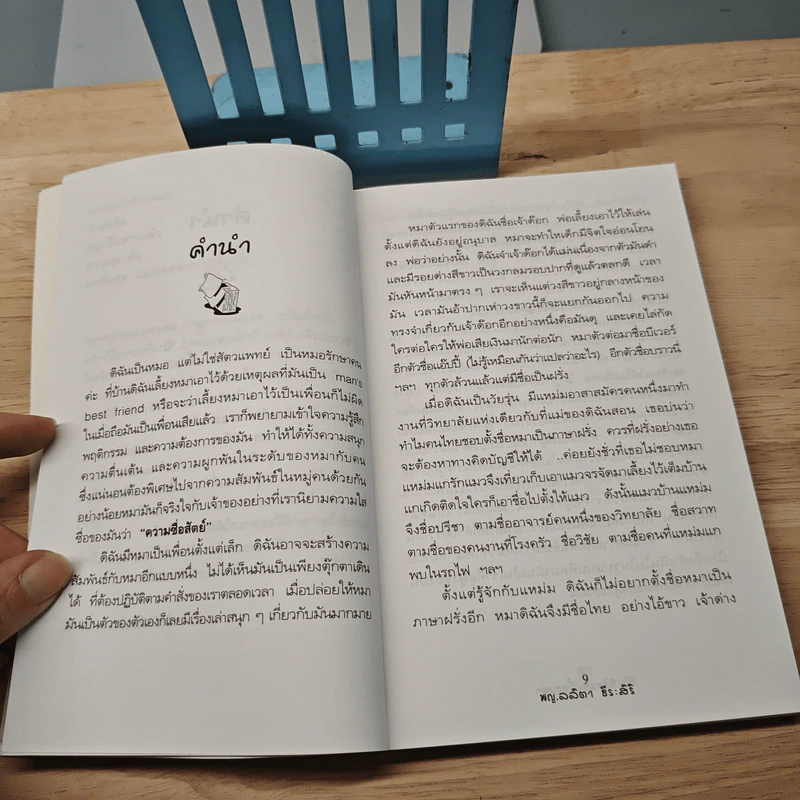 คำนำ
ดิฉันเป็นหมอ แต่ไม่ใช่สัตวแพทย์ เป็นหมอรักษาคน
ค่ะ ที่บ้านดิฉันเลี้ยงหมาเอาไว้ด้วยเหตุผลที่มันเป็น man's
best friend หรือจะว่าเลี้ยงหมาเอาไว้เป็นเพื่อนก็ไม่ผิด
ในเมื่อถือมันเป็นเพื่อนเสียแล้ว เราก็พยายามเข้าใจความรู้สึก
พฤติกรรม และความต้องการของมัน ทำให้ได้ทั้งความสนุก
ความตื่นเต้น และความผูกพันในระดับของหมากับคน
ซึ่งแน่นอนต้องพิเศษไปจากความสัมพันธ์ในหมู่คนด้วยกัน
อย่างน้อยหมามันก็จริงใจกับเจ้าของอย่างที่เรานิยามความใส
ซื่อของมันว่า "ความซื่อสัตย์"
ดิฉันมีหมาเป็นเพื่อนตั้งแต่เล็ก ดิฉันอาจจะสร้างความ
สัมพันธ์กับหมาอีกแบบหนึ่ง ไม่ได้เห็นมันเป็นเพียงตุ๊กตาเดิน
ได้ ที่ต้องปฏิบัติตามคำสั่งของเราตลอดเวลา เมื่อปล่อยให้หมา
มันเป็นตัวของตัวเองก็เลยมีเรื่องเล่าสนุก ๆ เกี่ยวกับมันมากมาย
หมาตัวแรกของดิฉันชื่อเจ้าด๊อก พ่อเลี้ยงเอาไว้ให้เล่น
ตั้งแต่ดิฉันยังอยู่อนุบาล หมาจะทำให้เด็กมีจิตใจอ่อนโยน
ลง พ่อว่าอย่างนั้น ดิฉันจำเจ้าด๊อกได้แม่นเนื่องจากตัวมันดำ
และมีรอยด่างสีขาวเป็นวงกลมรอบปากที่ดูแล้วตลกดี เวลา
มันหันหน้ามาตรง ๆ เราจะเห็นแต่วงสีขาวอยู่กลางหน้าของ
มัน เวลามันอ้าปากเห่าวงขาวนี้ก็จะแยกกันออกไป ความ
ทรงจำเกี่ยวกับเจ้าด๊อกอีกอย่างหนึ่งคือมันดุ และเคยไล่กัด
ใครต่อใครให้พ่อเสียเงินมานักต่อนัก หมาตัวต่อมาชื่อบีเวอร์
อีกตัวชื่อแอ๊ปปี้ (ไม่รู้เหมือนกันว่าแปลว่าอะไร) อีกตัวชื่อบราวนี่
ฯลฯ ทุกตัวล้วนแล้วแต่มีชื่อเป็นฝรั่ง
เมื่อดิฉันเป็นวัยรุ่น มีแหม่มอาสาสมัครคนหนึ่งมาทำ
งานที่วิทยาลัยแห่งเดียวกับที่แม่ของดิฉันสอน เธอบ่นว่า
ทำไมคนไทยชอบตั้งชื่อหมาเป็นภาษาฝรั่ง ควรที่ฝรั่งอย่างเธอ
จะต้องหาทางคิดบัญชีให้ได้ ..ค่อยยังชั่วที่เธอไม่ชอบหมา
แหม่มแกรักแมวจึงเที่ยวเก็บเอาแมวจรจัดมาเลี้ยงไว้เต็มบ้าน
แกเกิดติดใจใครก็เอาชื่อไปตั้งให้แมว ดังนั้นแมวบ้านแหม่ม
จึงชื่อปรีชา ตามชื่ออาจารย์คนหนึ่งของวิทยาลัย ชื่อสวาท
ตามชื่อของคนงานที่โรงครัว ชื่อวิชัย ตามชื่อคนที่แหม่มแก
พบในรถไฟ ฯลฯ
ตั้งแต่รู้จักกับแหม่ม ดิฉันก็ไม่อยากตั้งชื่อหมาเป็น
ภาษาฝรั่งอีก หมาดิฉันจึงมีชื่อไทย อย่างไอ้ขาว เจ้าด่าง
9
พญ.ลลิตา ธีระสิริ